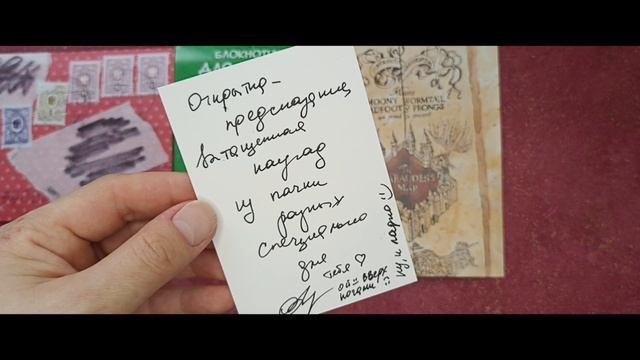 БЛОКНОТ
ДЛЯ
Открытка-
предсказание,
вытащенная
наугад
из папки
разных
специально
для
тебя ♡
ой!! вверх
ногами :)
ну, и ладно :)
MOONY WORMTAIL
PADFOOT & PRONGS
MARAUDER'S
MAP